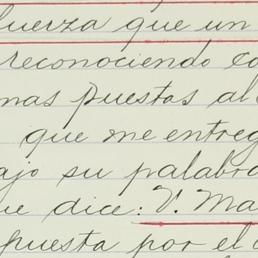 fuerza que un
reconociendo co
mas puestas al
que me entreg
ajo su palabra
ue dice: V. Ma
puesta por el